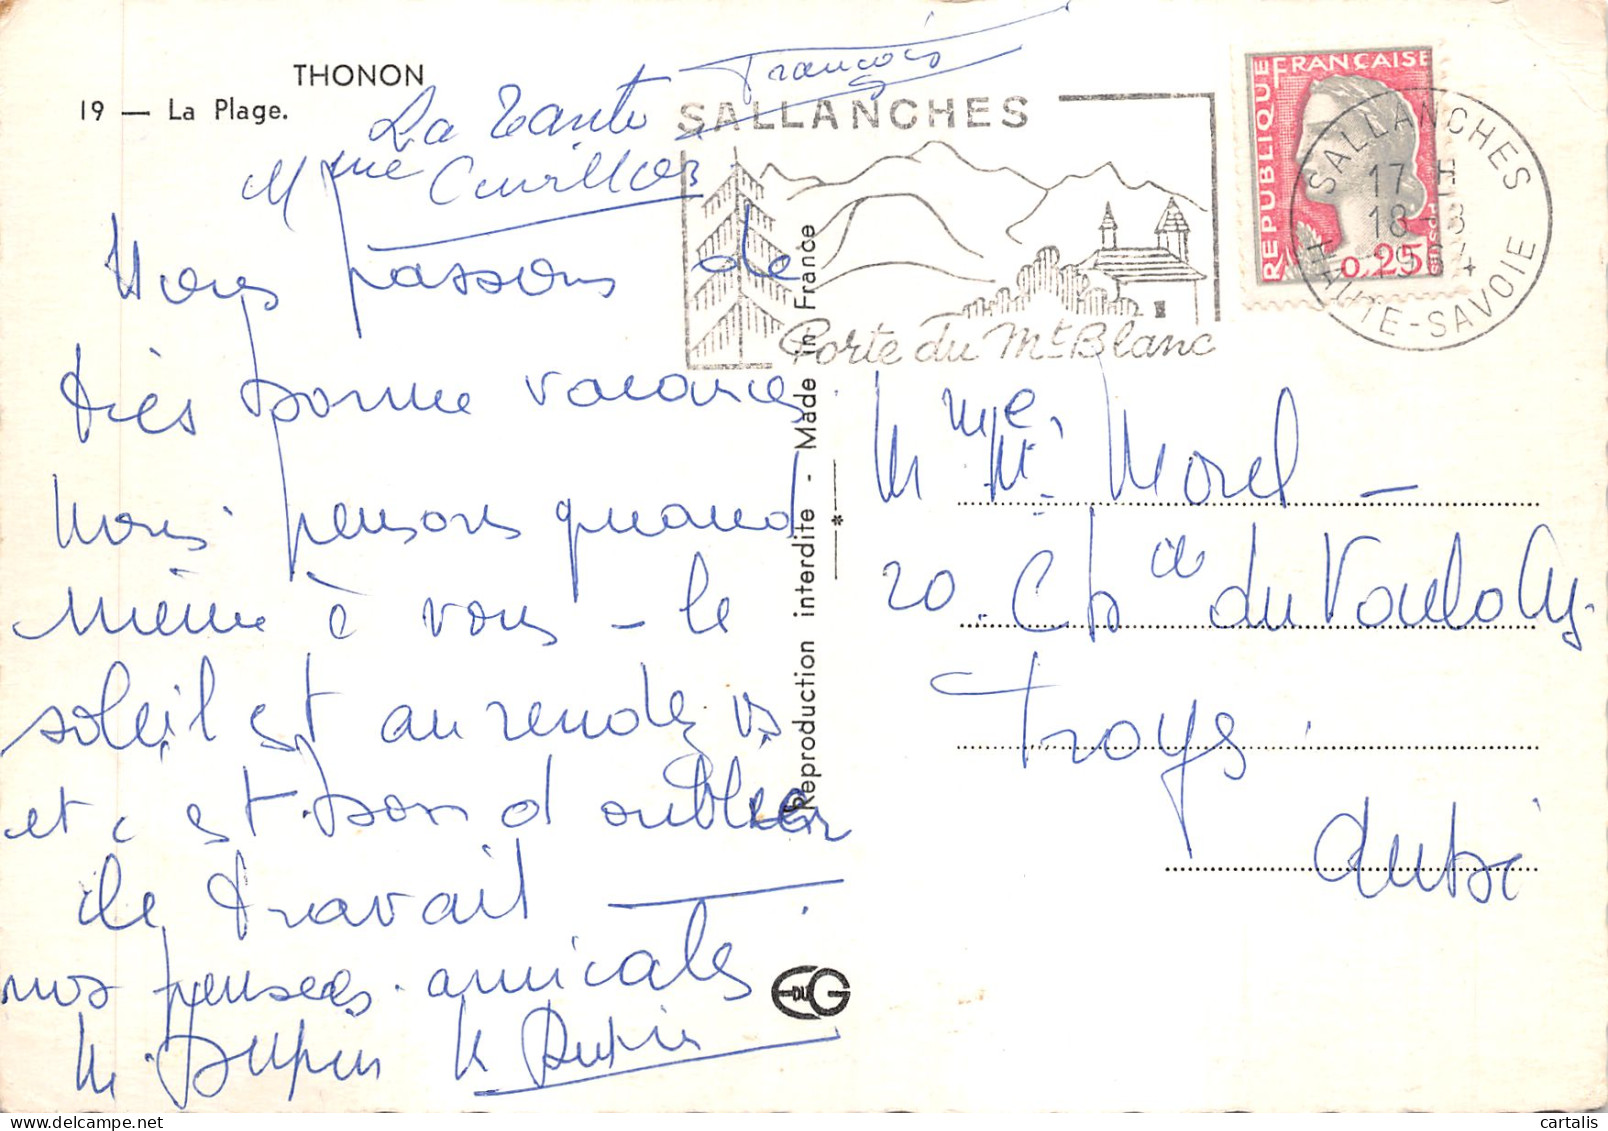 THONON
19 — La Plage.
La Tante François
Mme
Nous passons de
très bonne vacances
nous pensons quand
même à vous - le
soleil est au rendez vs
et c'est bon d oublier
le travail
nos pensées amicales
SALLANCHES
Porte du Mt Blanc
RÉPUBLIQUE FRANÇAISE
0,25
SALLANCHES
17 H
18 - 8
HAUTE-SAVOIE
Reproduction interdite - Made in France
M Mme M. Morel -
20. Ch du Vouldy.
Troyes.
Aube
EDUG
cartalis - delcampe.net